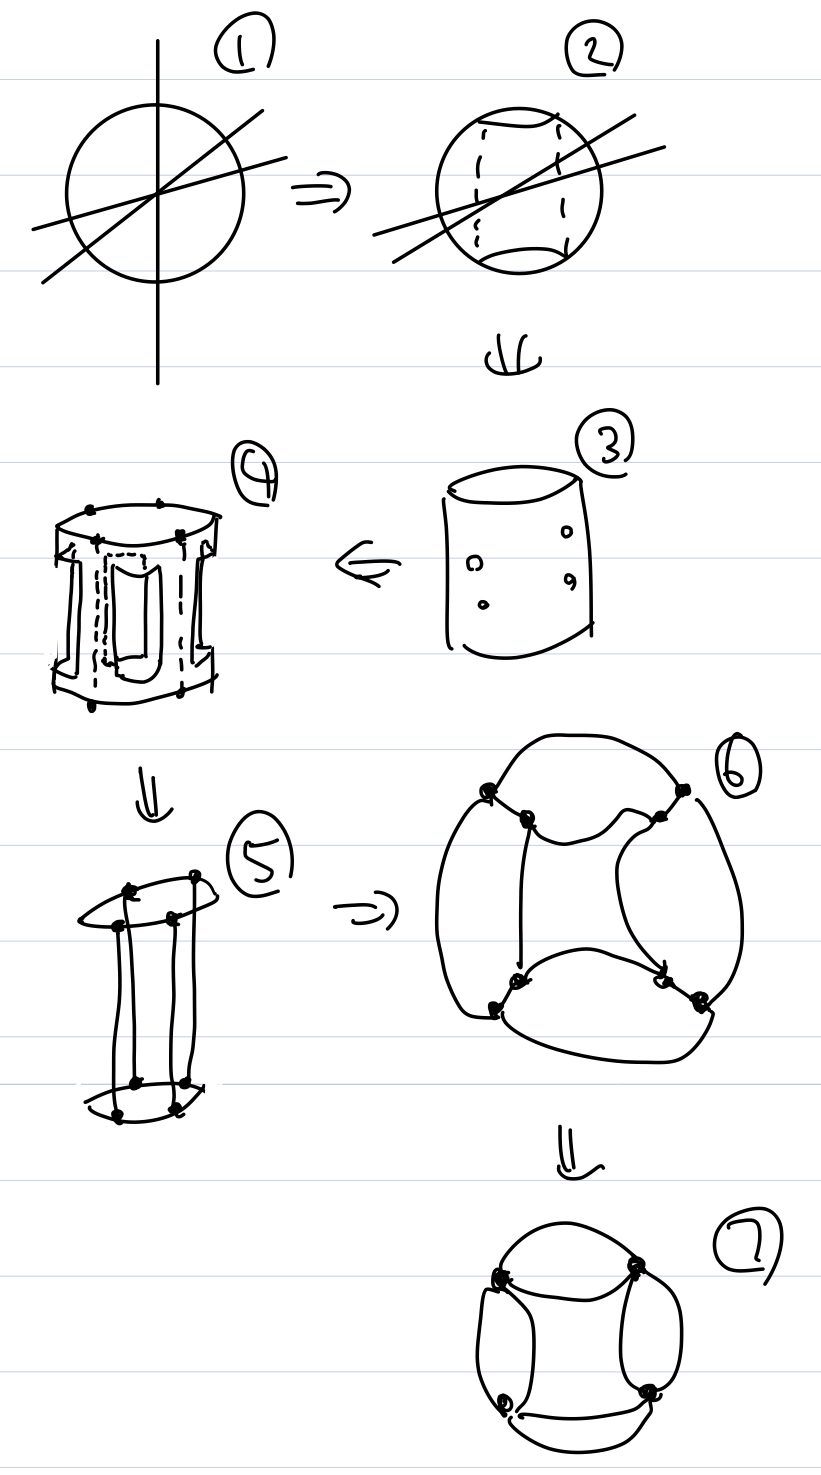 ①
②
③
④
⑤
⑥
⑦